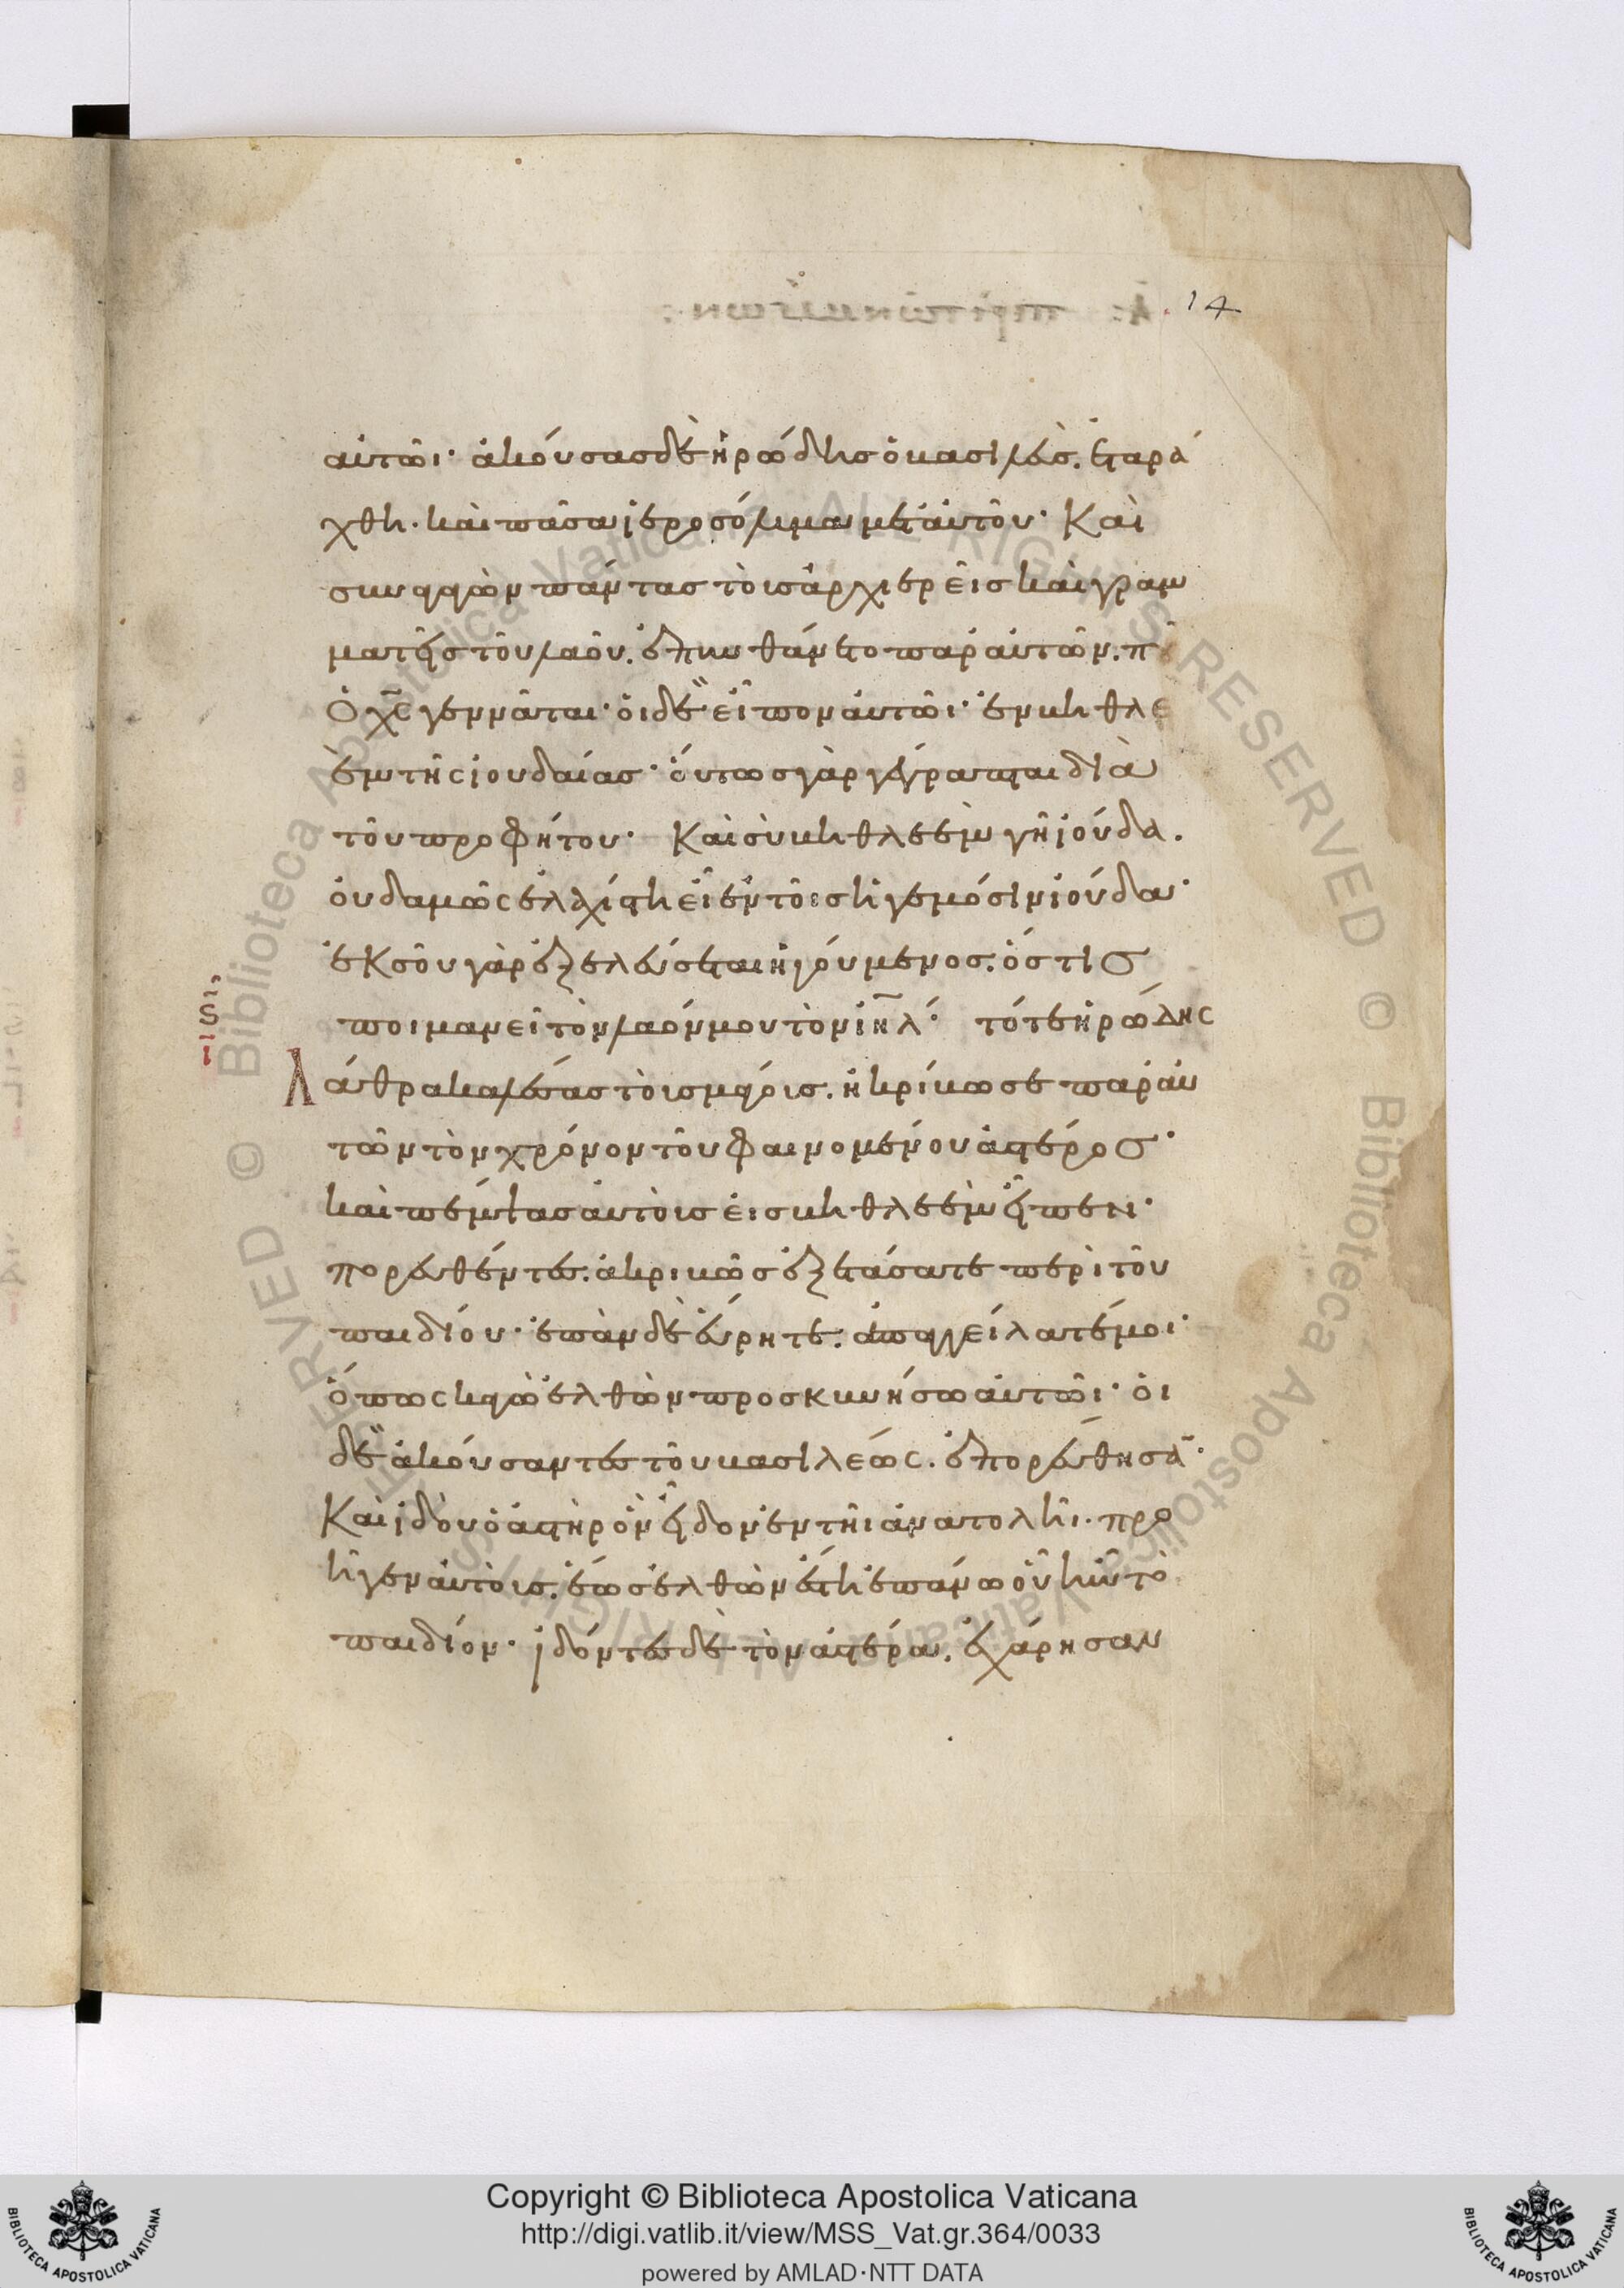 14
αὐτῶι· ἀκούσας δὲ ἡρώδης ὁ βασιλεὺς. ἐταρά
χθη. καὶ πᾶσα ἱεροσόλυμα μετ' αὐτοῦ· Καὶ
συναγαγὼν πάντας τοὺς ἀρχιερεῖς καὶ γραμ
ματεῖς τοῦ λαοῦ. ἐπυνθάνετο παρ' αὐτῶν. π
ὁ χ̅ς̅ γεννᾶται· οἱ δὲ εἶπον αὐτῶι· ἐν βηθλε
ὲμ τῆς ἰουδαίας· οὕτως γὰρ γέγραπται διὰ
τοῦ προφήτου· Καὶ σὺ βηθλεὲμ γῆ ἰούδα.
οὐδαμῶς ἐλαχίστη εἶ ἐν τοῖς ἡγεμόσιν ἰούδα·
ἐκ σοῦ γὰρ ἐξελεύσεται ἡγούμενος. ὅστις
ποιμανεῖ τὸν λαόν μου τὸν ἰη̅λ· τότε ἡρώδης
λάθρα καλέσας τοὺς μάγους. ἠκρίβωσε παρ' αὐ
τῶν τὸν χρόνον τοῦ φαινομένου ἀστέρος·
καὶ πέμψας αὐτοὺς εἰς βηθλεὲμ εἶπεν·
πορευθέντες. ἀκριβῶς ἐξετάσατε περὶ τοῦ
παιδίου· ἐπὰν δὲ εὕρητε. ἀπαγγείλατέ μοι·
ὅπως κἀγὼ ἐλθὼν προσκυνήσω αὐτῶι· οἱ
δὲ ἀκούσαντες τοῦ βασιλέως. ἐπορεύθησα̅·
Καὶ ἰδοὺ ὁ ἀστὴρ ὃν εἶδον ἐν τῆι ἀνατολῆι. προ
ῆγεν αὐτοὺς. ἕως ἐλθὼν ἔστη ἐπάνω οὗ ἦν τὸ
παιδίον· ἰδόντες δὲ τὸν ἀστέρα. ἐχάρησαν
Copyright © Biblioteca Apostolica Vaticana
http://digi.vatlib.it/view/MSS_Vat.gr.364/0033
powered by AMLAD·NTT DATA
BIBLIOTECA APOSTOLICA VATICANA
BIBLIOTECA APOSTOLICA VATICANA